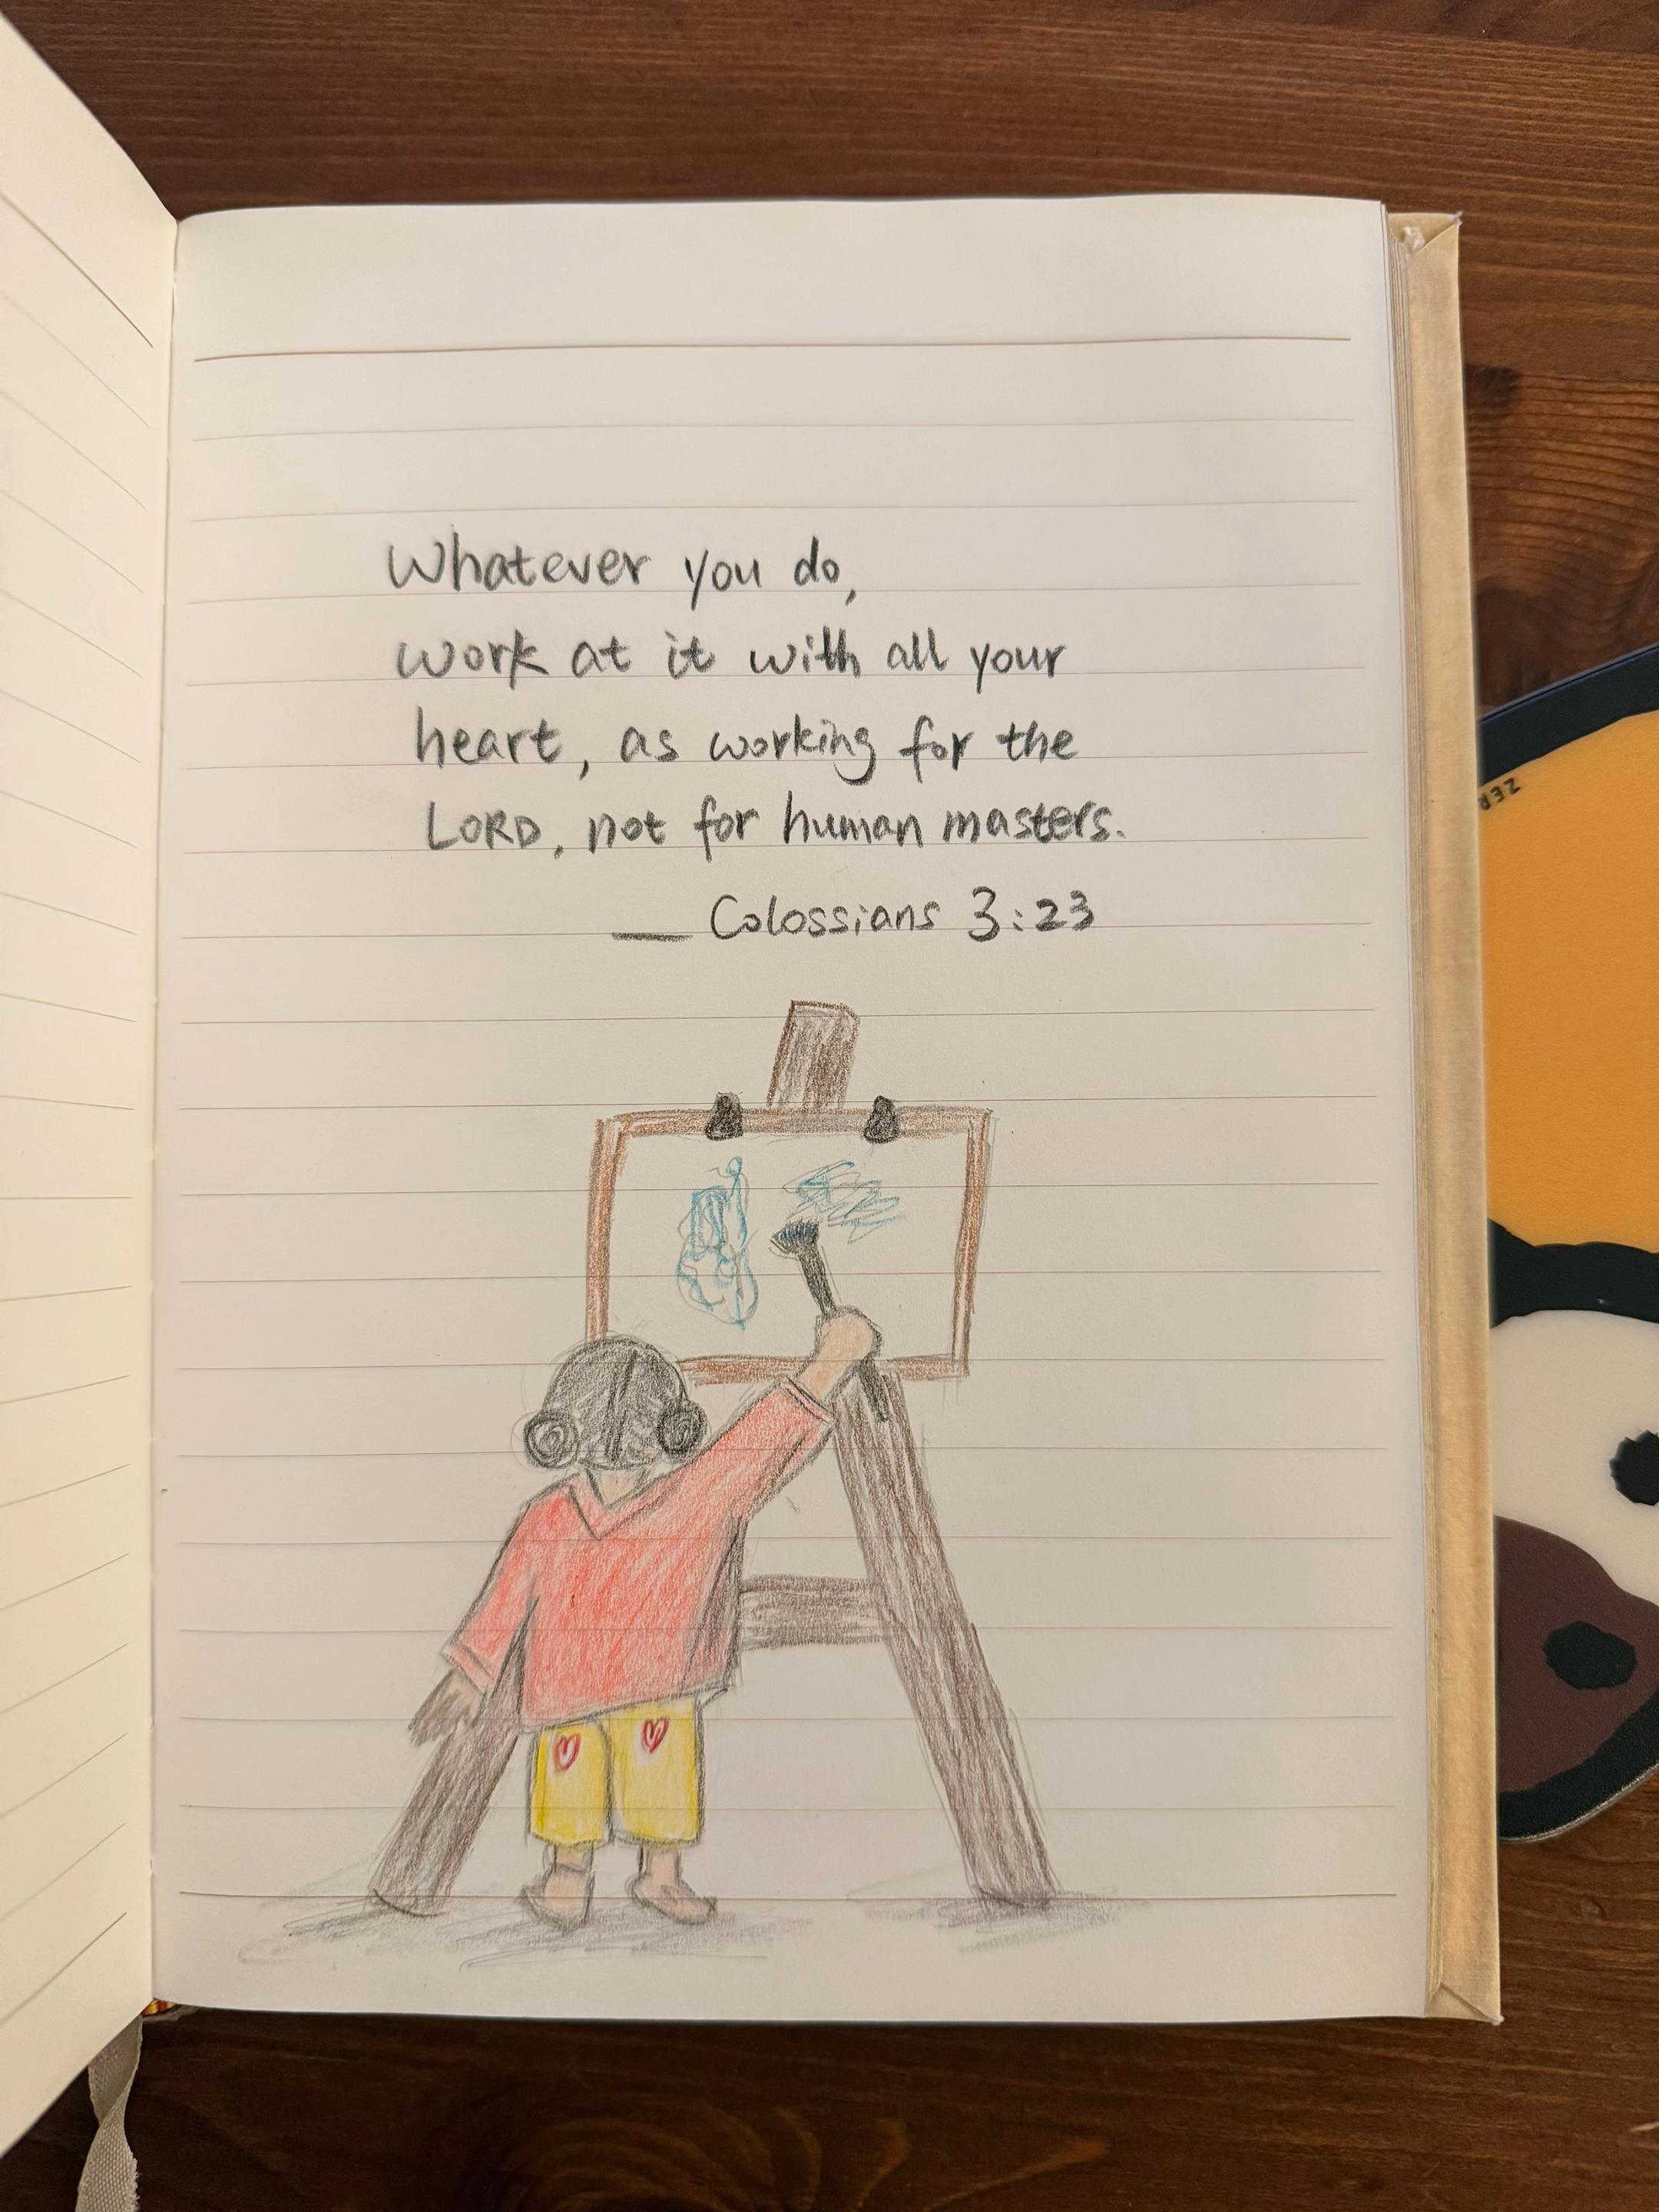 Whatever you do,
work at it with all your
heart, as working for the
LORD, not for human masters.
— Colossians 3:23